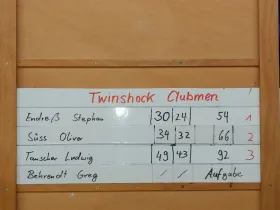 Twinshock Clubmen
Endreß Stephan 30 24 54 1
Süss Oliver 34 32 66 2
Tauscher Ludwig 49 43 92 3
Behrendt Greg / / Aufgabe